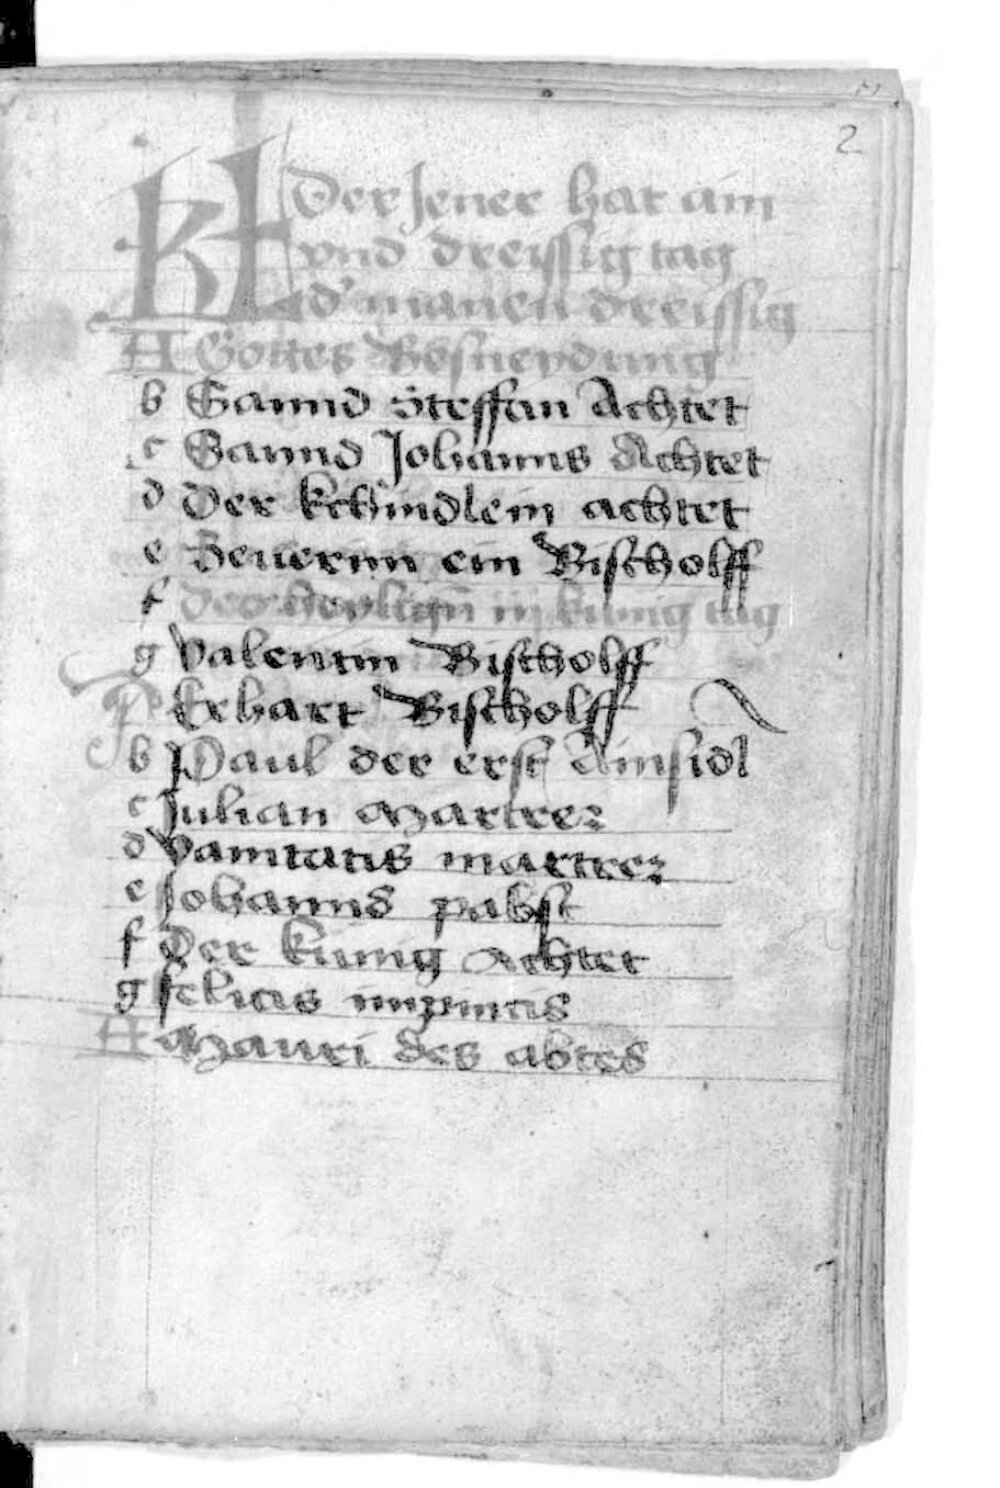 2
Kl Der Jener hat ain
vnd dreissig tag
d' manen dreissig
A Gottes Besneydung
b Sannd Steffan Achtet
c Sannd Johanns Achtet
d Der kchindlein achtet
e Seuerinn ein Bischolff
f der heyligñ iij kunig tag
g Valentin Bischolff
A Erhart Bischolff
b Paul der erst Ainsidl
c Julian Martrer
d Vanitatis martrer
e Johanns pabst
f Der kunig Achtet
g felicis inpincis
A Mauri des abtes